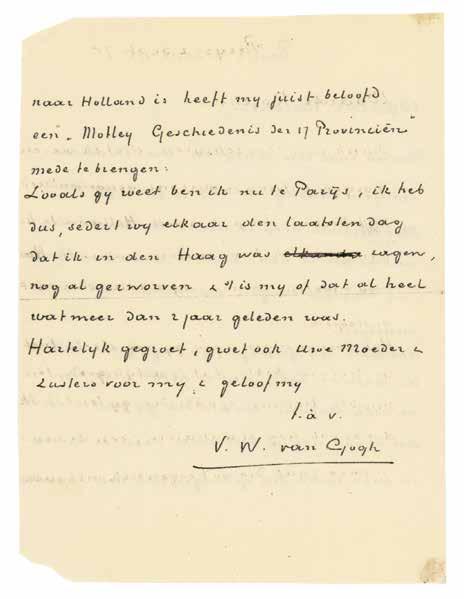 naar Holland is heeft my juist beloofd
een „Motley Geschiedenis der 17 Provinciën"
mede te brengen.
Zooals gy weet ben ik nu te Parys, ik heb
dus, sedert wy elkaar den laatsten dag
dat ik in den Haag was elkander zagen,
nog al gezworven & 't is my of dat al heel
wat meer dan 2 jaar geleden was.
Hartelyk gegroet, groet ook Uwe Moeder &
Zusters voor my & geloof my
t. à v.
V. W. van Gogh